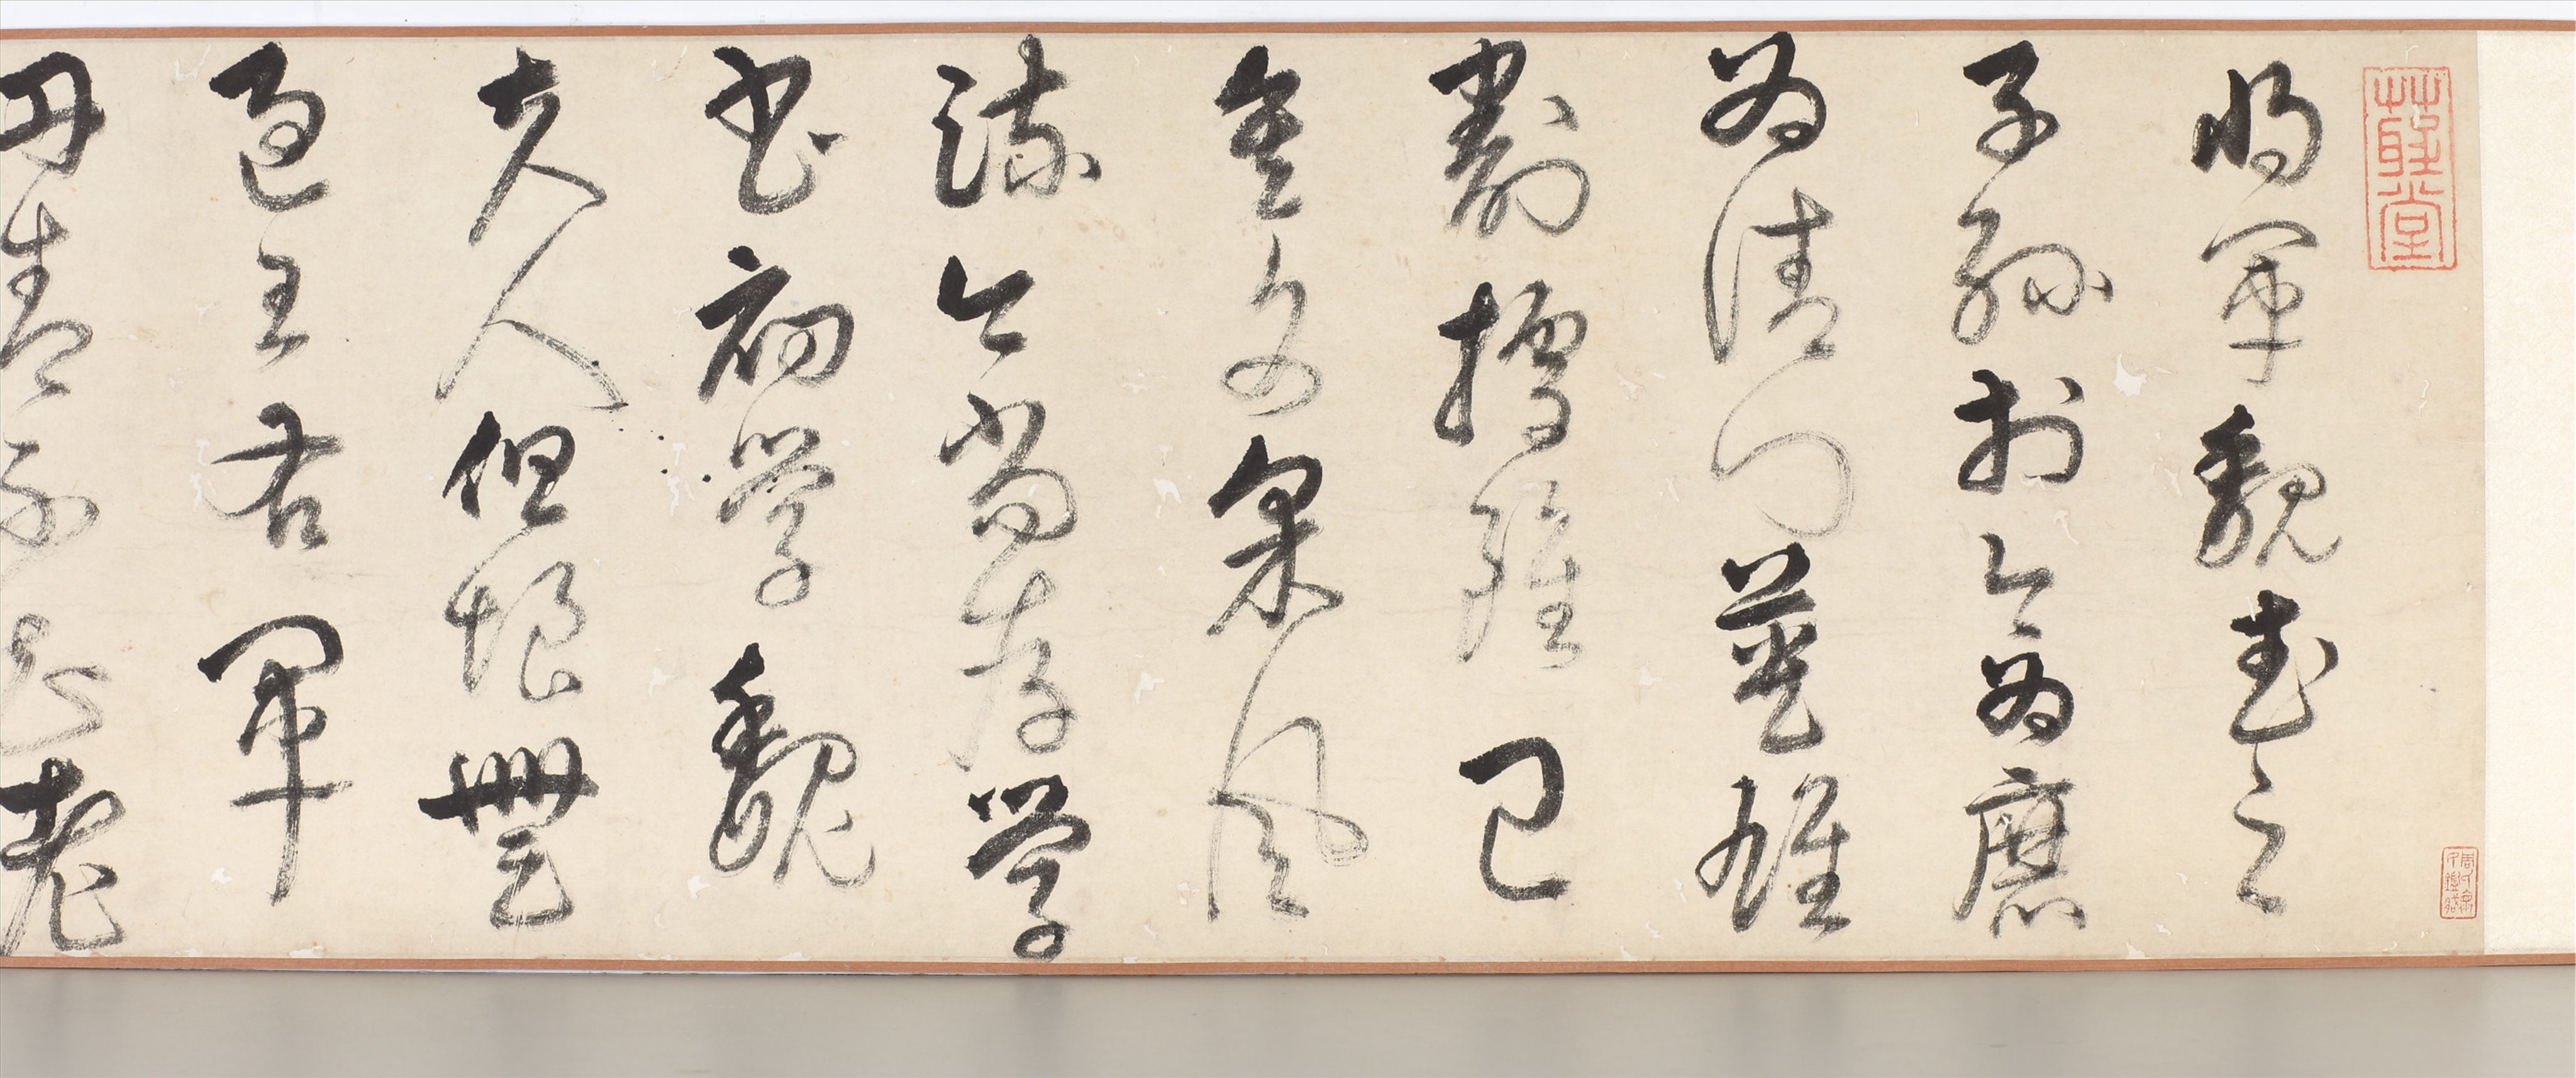 將軍魏武之
子孫於今為庶
為清門英雄
割據雖已
矣文采風
流今尚存學
書初學魏
夫人但恨無
過王右軍
丹青不知老